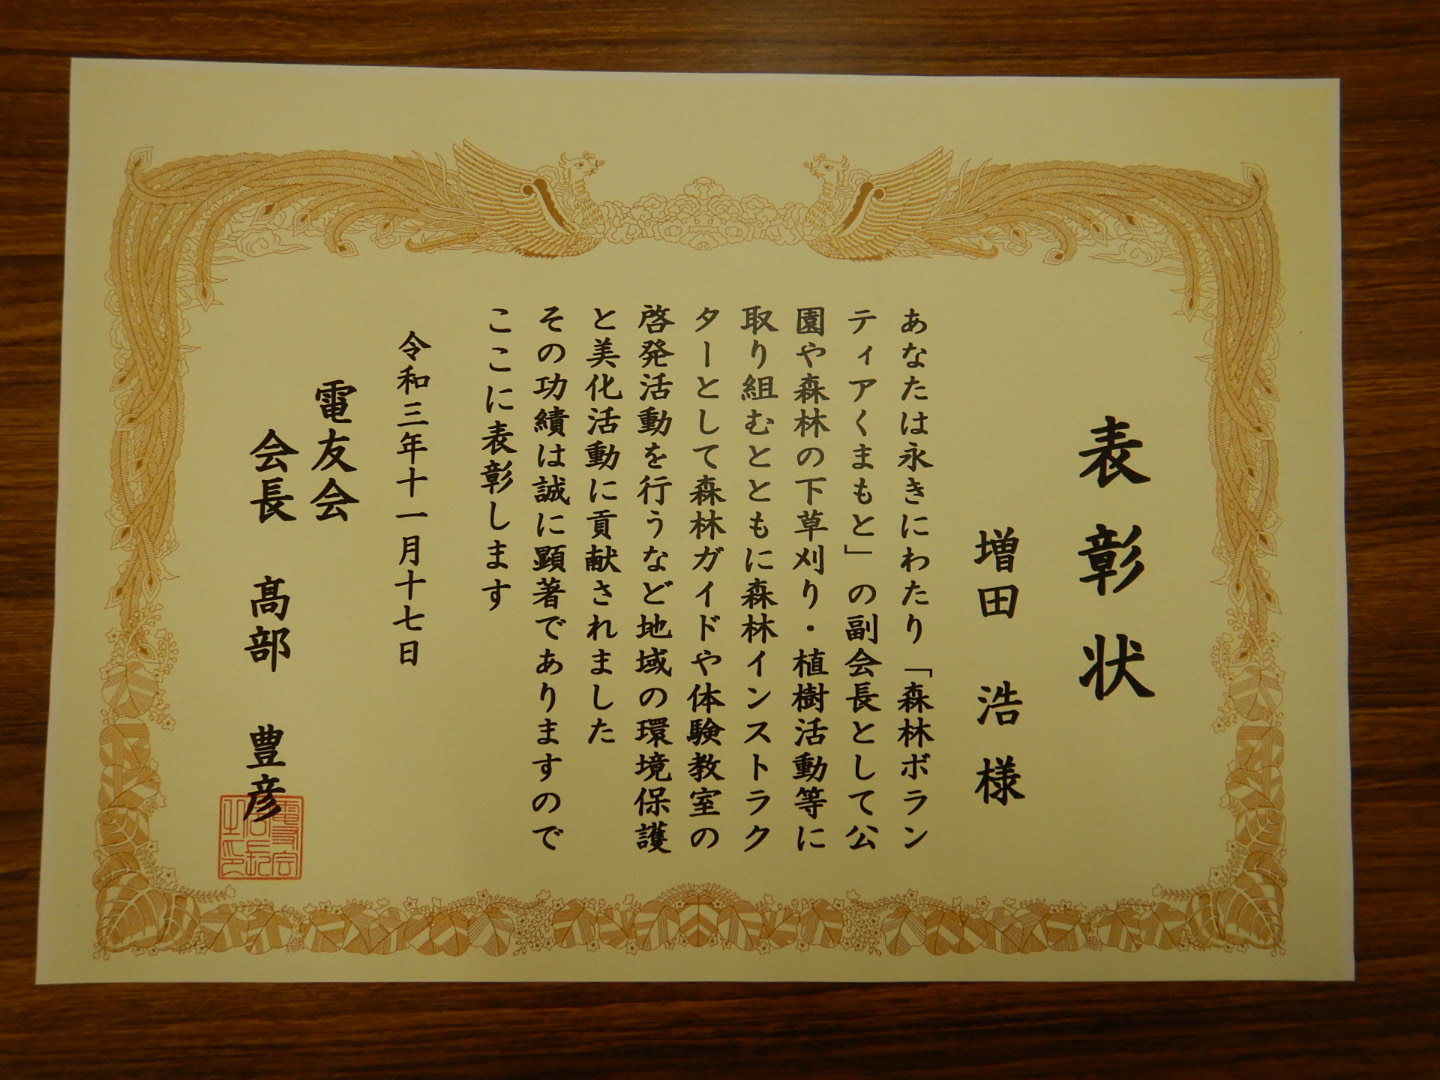 表彰状
増田 浩 様
あなたは永きにわたり「森林ボラン
ティアくまもと」の副会長として公
園や森林の下草刈り・植樹活動等に
取り組むとともに森林インストラク
ターとして森林ガイドや体験教室の
啓発活動を行うなど地域の環境保護
と美化活動に貢献されました
その功績は誠に顕著でありますので
ここに表彰します
令和三年十一月十七日
電友会
会長 髙部 豊彦
電友会
会長
之印